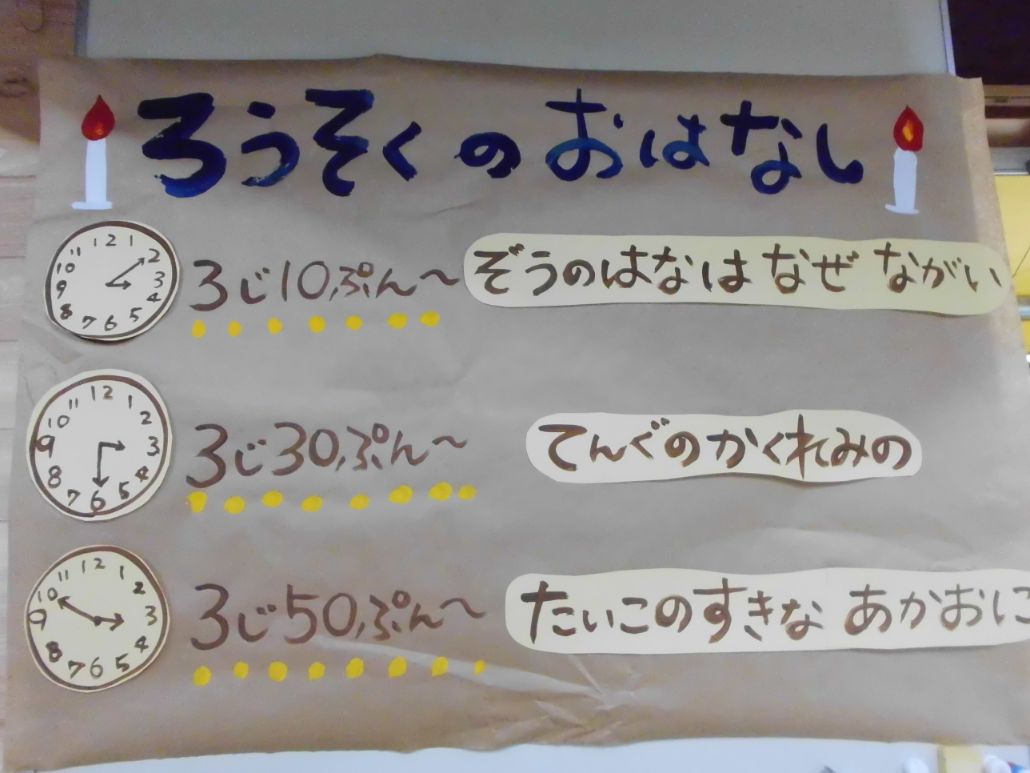 ろうそくのおはなし
3じ10ぷん～ ぞうのはなは なぜ ながい
3じ30ぷん～ てんぐのかくれみの
3じ50ぷん～ たいこのすきな あかおに
12 1 2 3 4 5 6 7 8 9 10 11
12 1 2 3 4 5 6 7 8 9 10 11
12 1 2 3 4 5 6 7 8 9 10 11